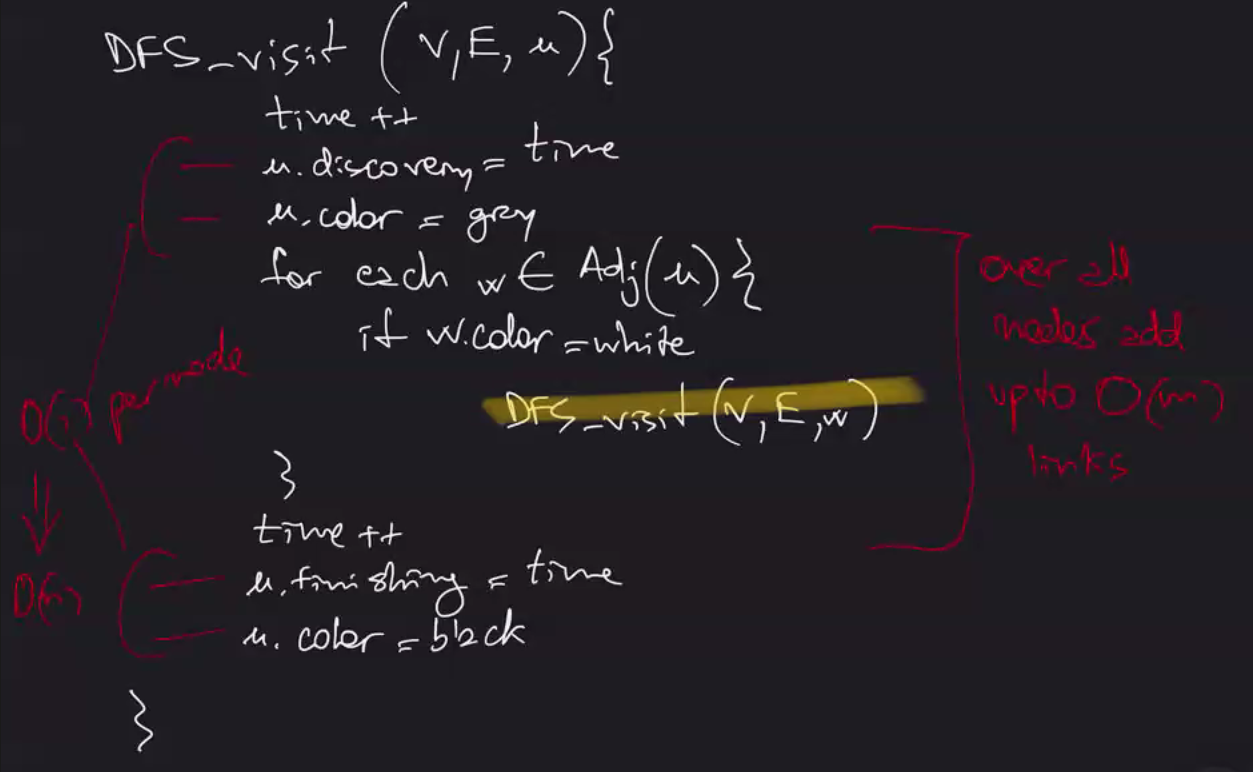 DFS_visit (V, E, u) {
time ++
u. discovery = time
u. color = grey
for each w ∈ Adj(u) {
if w.color = white
DFS_visit (V, E, w)
}
time ++
u. finishing = time
u. color = black
}
O(1) per node
⇓
O(n)
over all
nodes add
up to O(m)
links